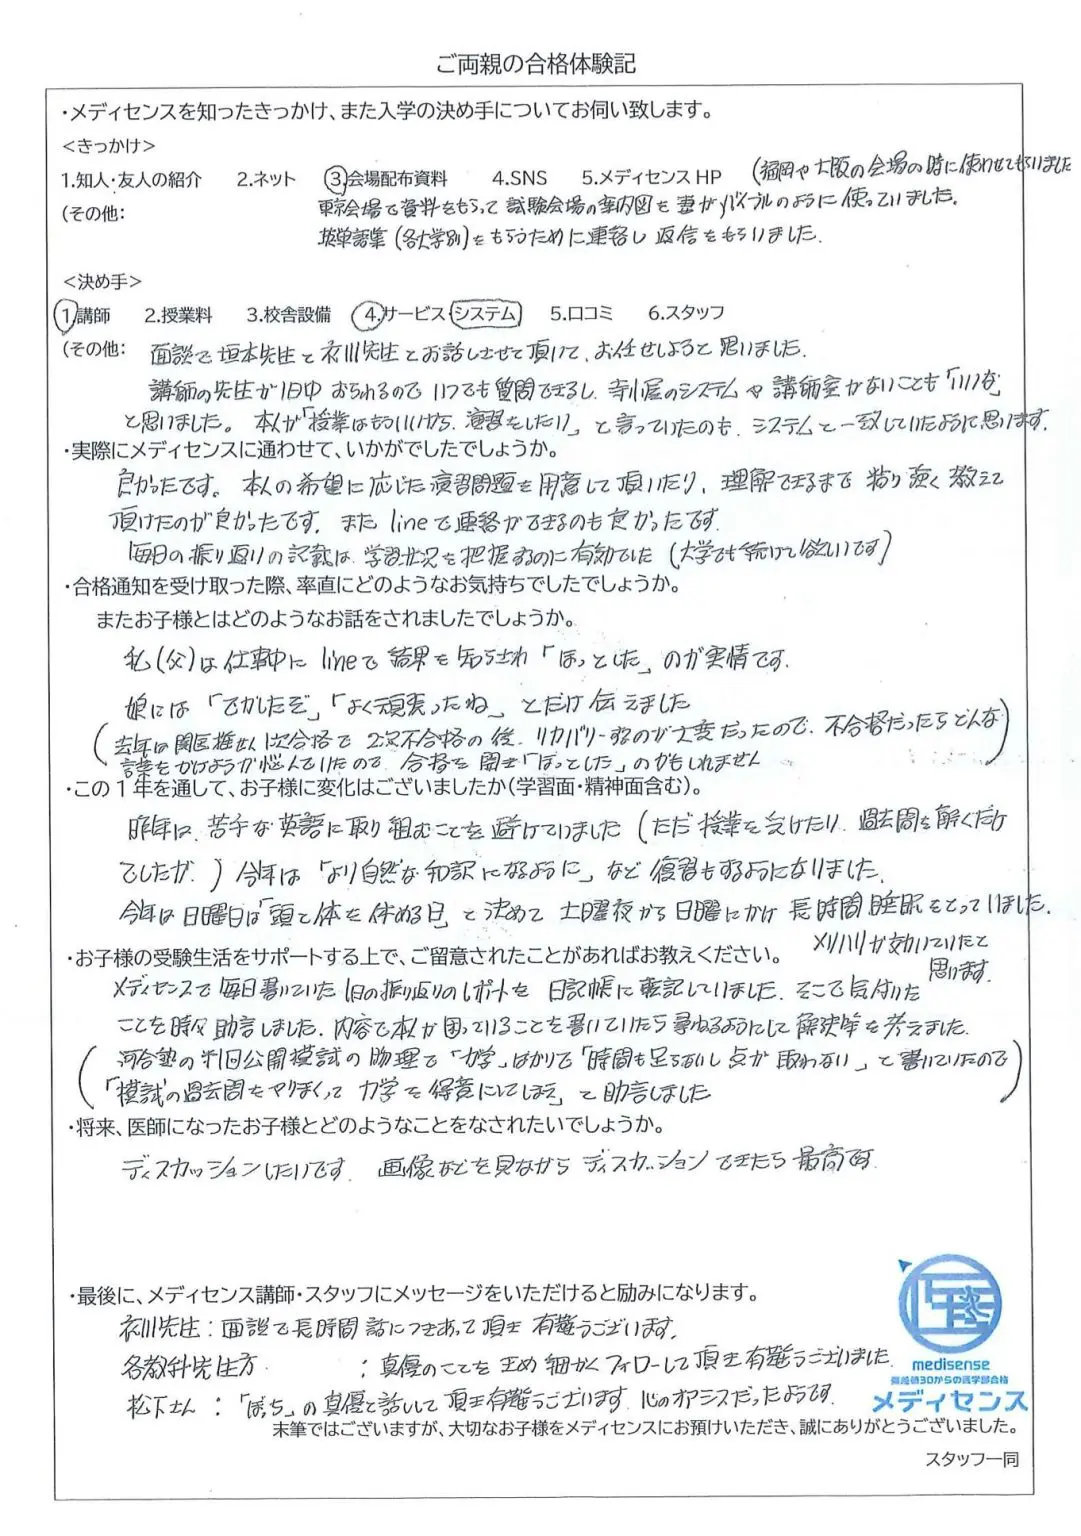 ご両親の合格体験記
・メディセンスを知ったきっかけ、また入学の決め手についてお伺い致します。
<きっかけ>
1.知人・友人の紹介 2.ネット 3.会場配布資料 4.SNS 5.メディセンスHP (福岡や大阪の会場の時に使わせてもらいました
(その他: 東京会場で資料をもらって試験会場の案内図を妻がバイブルのように使っていました。
英単語集(各大学別)をもらうために連絡し返信をもらいました.
<決め手>
1.講師 2.授業料 3.校舎設備 4.サービス・システム 5.口コミ 6.スタッフ
(その他: 面談で垣本先生と衣川先生とお話しさせて頂いて、お任せしようと思いました.
講師の先生が1日中おられるのでいつでも質問できるし、寺小屋のシステムや講師室がないことも「いいな」
と思いました。本人が「授業はもういいから、演習をしたい」と言っていたのも、システムと一致していたように思います.
・実際にメディセンスに通わせて、いかがでしたでしょうか。
良かったです。本人の希望に応じた演習問題を用意して頂いたり、理解できるまで粘り強く教えて
頂けたのが良かったです. また lineで連絡ができるのも良かったです.
毎日の振り返りの記載は、学習状況を把握するのに有効でした(大学でも続けて欲しいです)
・合格通知を受け取った際、率直にどのようなお気持ちでしたでしょうか。
またお子様とはどのようなお話をされましたでしょうか。
私(父)は仕事中に lineで結果を知らされ「ほっとした」のが実情です.
娘には「でかしたぞ」「よく頑張ったね」とだけ伝えました
(去年は関医推せん1次合格で2次不合格の後、リカバリーするのが大変だったので、不合格だったらどんな
言葉をかけようか悩んでいたので、合格を聞き「ほっとした」のかもしれません)
・この1年を通して、お子様に変化はございましたか(学習面・精神面含む)。
昨年は、苦手な英語に取り組むことを避けていました(ただ授業を受けたり、過去問を解くだけ
でしたが.) 今年は「より自然な和訳になるように」など復習もするようになりました.
今年は日曜日は「頭と体を休める日」と決めて土曜夜から日曜にかけ長時間睡眠をとっていました.
メリハリが効いていたと
思います.
・お子様の受験生活をサポートする上で、ご留意されたことがあればお教えください。
メディセンスで毎日書いていた1日の振り返りのレポートを日記帳に転記していました. そこで気付いた
ことを時々助言しました. 内容で本人が困っていることを書いていたら尋ねるようにして解決策を考えました.
(河合塾の 公開模試の物理で「力学」ばかりで「時間も足らないし点が取れない」と書いていたので
「模試の過去問をやりまくって力学を得意にしてしまえ」と助言しました)
・将来、医師になったお子様とどのようなことをなされたいでしょうか。
ディスカッションしたいです. 画像などを見ながらディスカッションできたら最高です.
・最後に、メディセンス講師・スタッフにメッセージをいただけると励みになります。
衣川先生:面談で長時間話につきあって頂き有難うございます.
各教科先生方:真優のことを 細かくフォローして頂き有難うございました.
松下さん:「ぼっち」の真優と話して頂き有難うございます. 心のオアシスだったようです.
medisense
偏差値30からの医学部合格
メディセンス
末筆ではございますが、大切なお子様をメディセンスにお預けいただき、誠にありがとうございました。
スタッフ一同